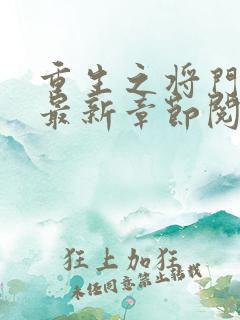 重生之将门
最新章节阅
狂上加狂
未经同意禁止转载